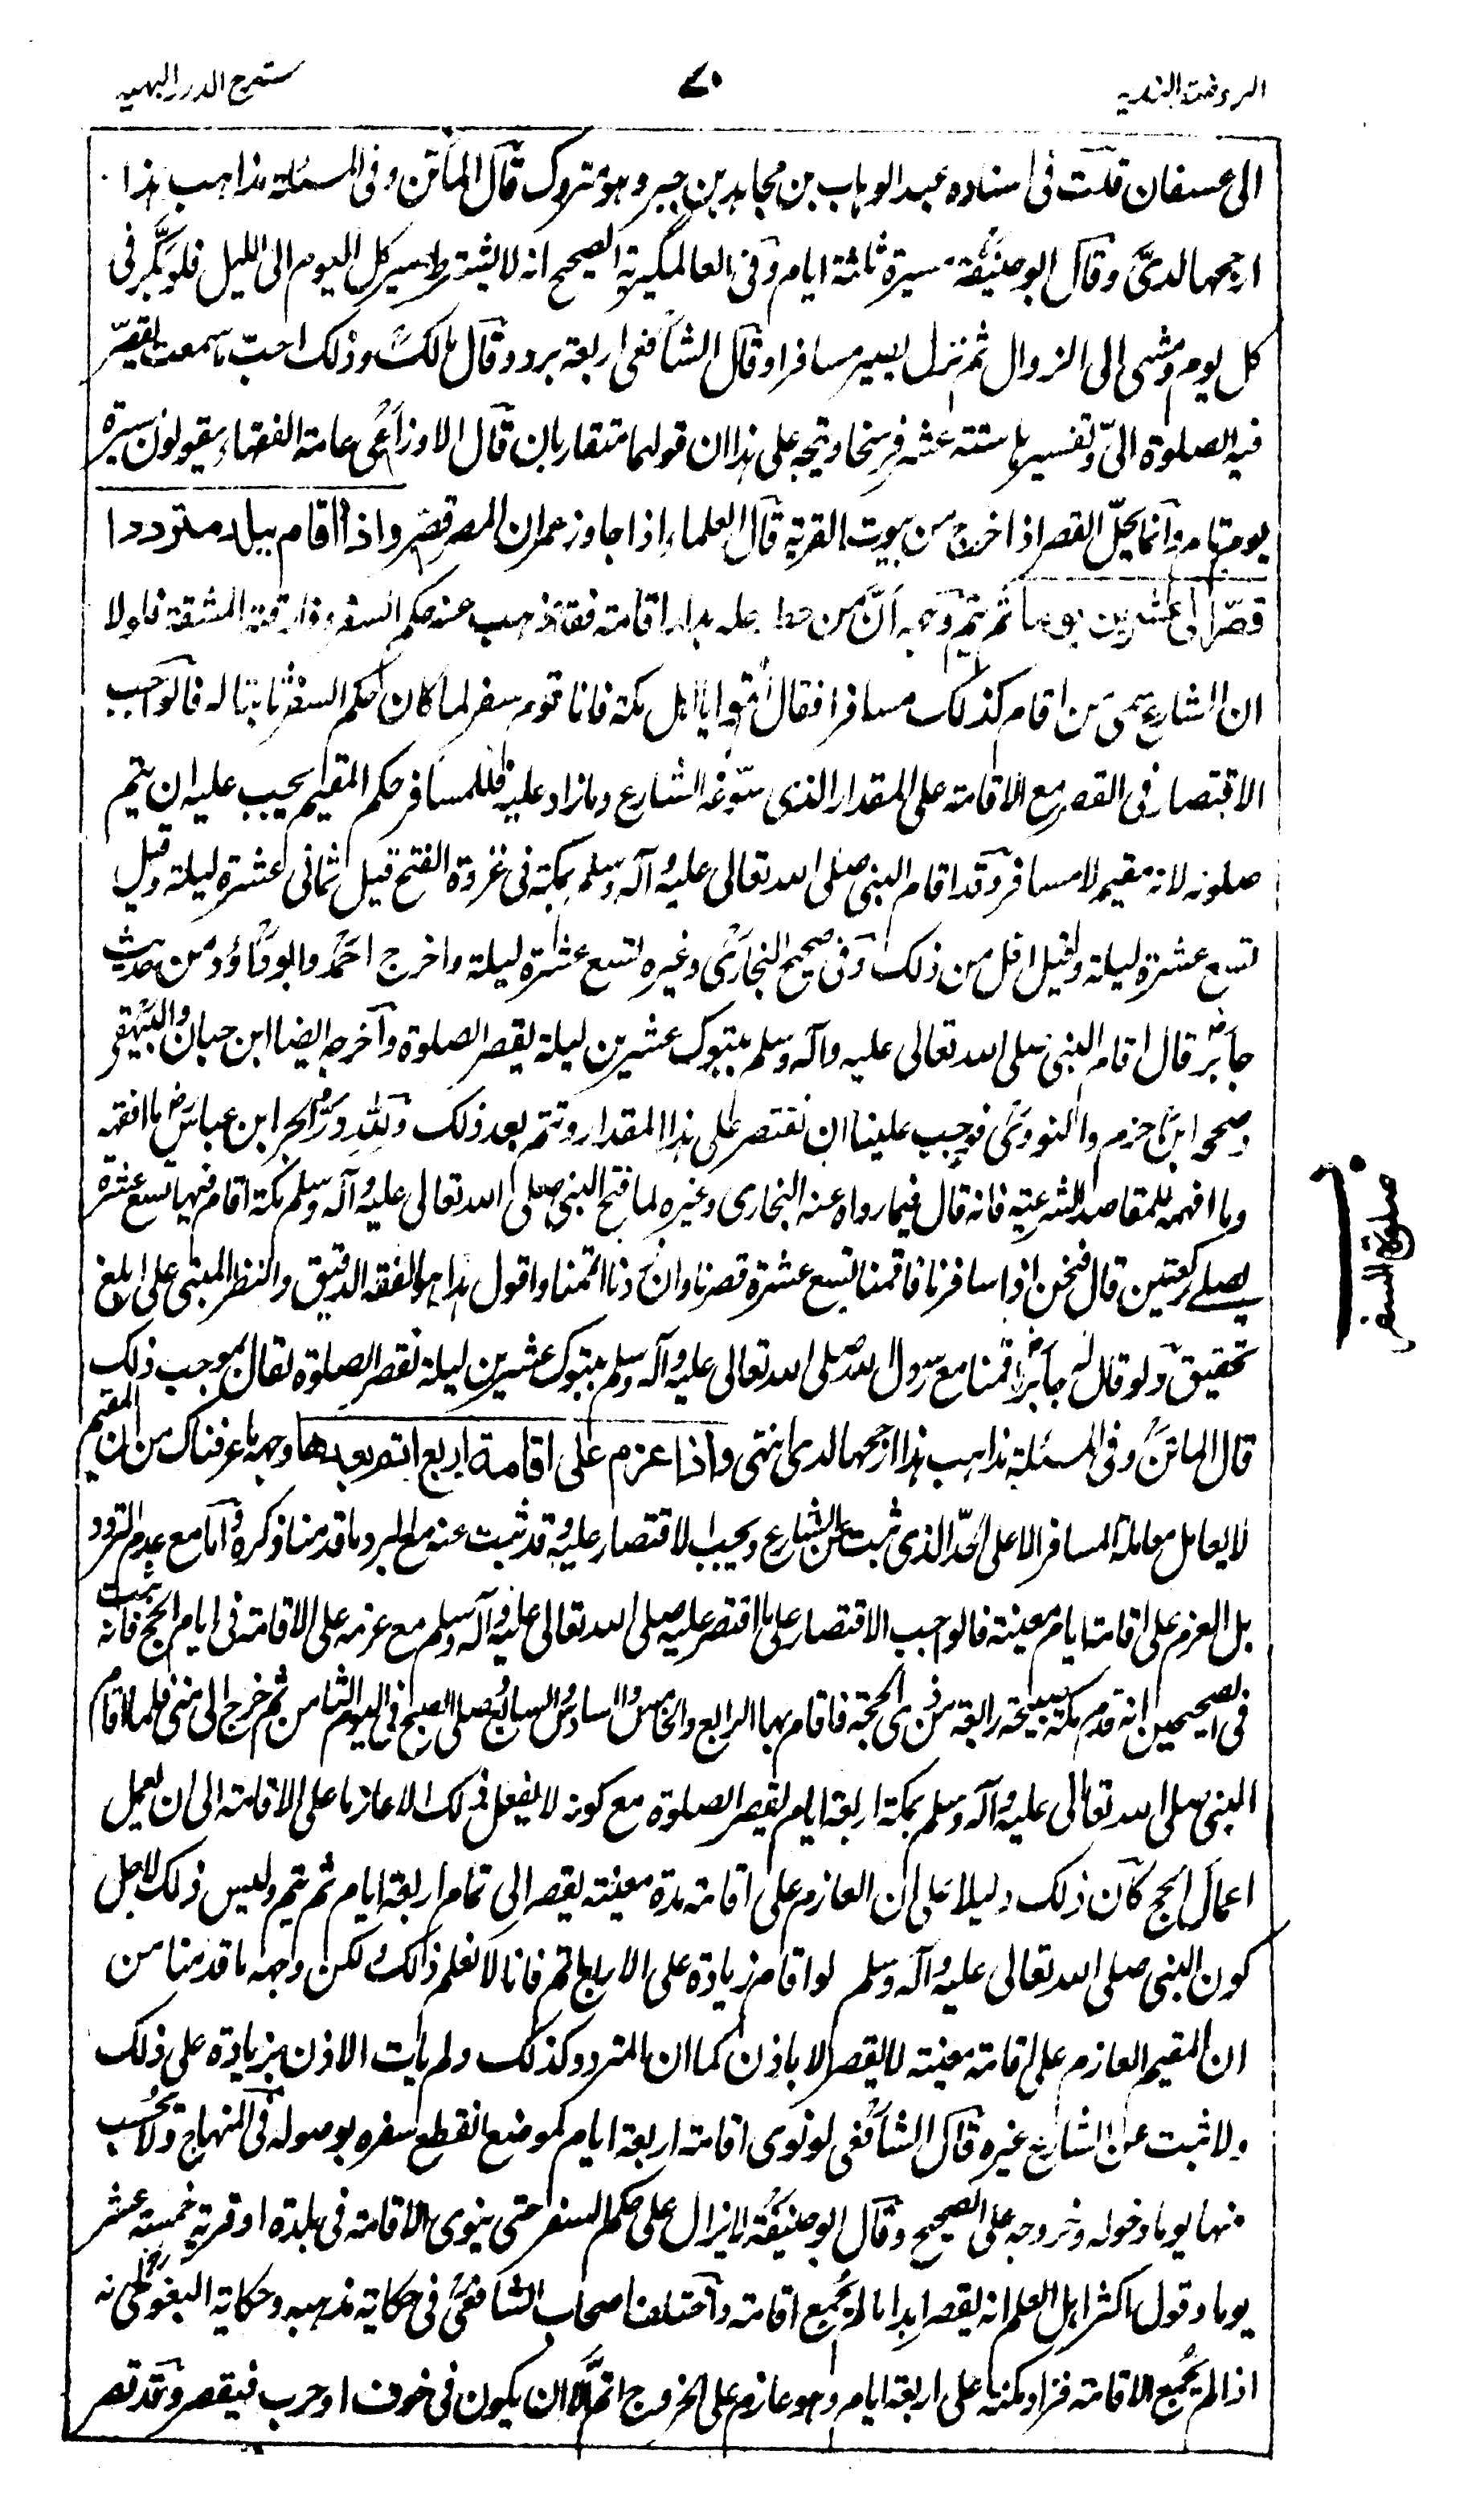 الروضة الندية
٧٠
شرح الدرر البهية
الى عسفان قلت فى اسناده عبد الوهاب بن مجاهد بن جبر وهو متروك قال الماتن وفى المسئلة مذاهب هذا
ارجحها لدىّ وقال ابو حنيفة مسيرة ثلثة ايام وفى العالمگيرية الصحيح انه لا يشترط سير كل اليوم الى الليل فلو بكّر فى
كل يوم ومشى الى الزوال ثم نزل يصير مسافرا وقال الشافعى اربعة برد وقال مالك وذلك احبّ ما سمعت تقصّر
فيه الصلوة الىّ وتفسيرها ستة عشر فرسخا ويتجه على هذا ان قولهما متقاربان قال الاوزاعى عامة الفقهاء يقولون مسيرة
يوم تام وانما يحلّ القصر اذا خرج من بيوت القرية قال العلماء اذا جاوز عمران المصر قصّر واذا اقام ببلد مترددا
قصّر الى عشرين يوما ثم يتم وجهه انّ من حط رحله بدار اقامة فقد ذهب عنه حكم السفر وفارقته المشقة فلولا
ان الشارع سمى من اقام كذلك مسافرا فقال اتموا يا اهل مكة فانا قوم سفر لما كان حكم السفر ثابتا له فالواجب
الاقتصار فى القصر مع الاقامة على المقدار الذى سوّغه الشارع وما زاد عليه فللمسافر حكم المقيم يجب عليه ان يتم
صلوته لانه مقيم لا مسافر وقد اقام النبى صلى الله تعالى عليه وآله وسلم بمكة فى غزوة الفتح قيل ثمانى عشرة ليلة وقيل
تسع عشرة ليلة وقيل اقل من ذلك وفى صحيح البخارى وغيره تسع عشرة ليلة واخرج احمد وابو داؤد من حديث
جابر قال اقام النبى صلى الله تعالى عليه وآله وسلم بتبوك عشرين ليلة يقصر الصلوة وآخرجه ايضا ابن حبان والبيهقى
وصححه ابن حزم والنووى فوجب علينا ان نقتصر على هذا المقدار ونتم بعد ذلك ولله درّ الحبر ابن عباس ما افقهه
وما افهمه للمقاصد الشرعية فانه قال فيما رواه عنه البخارى وغيره لما فتح النبى صلى الله تعالى عليه وآله وسلم مكة اقام فيها تسع عشرة
يصلى ركعتين قال فنحن اذا سافرنا فاقمنا تسع عشرة قصرنا وان زدنا اتممنا واقول هذا هو الفقه الدقيق والنظر المبنى على ابلغ
تحقيق ولو قال له جابر اقمنا مع رسول الله صلى الله تعالى عليه وآله وسلم بتبوك عشرين ليلة نقصر الصلوة لقال بموجب ذلك
قال الماتن وفى المسئلة مذاهب هذا ارجحها لدى انتهى واذا عزم على اقامة اربع اتم بعدها وجهه ما عرفناك من ان المقيم
لا يعامل معاملة المسافر الا على الحدّ الذى ثبت عن الشارع ويجب الاقتصار عليه وقد ثبت عنه مع التردد ما قدمنا ذكره وآما مع عدم التردد
بل العزم على اقامة ايام معينة فالواجب الاقتصار على ما اقتصر عليه صلى الله تعالى عليه وآله وسلم مع عزمه على الاقامة فى ايام الحج فانه ثبت
فى الصحيحين انه قدم مكة صبيحة رابعة من ذى الحجة فاقام بها الرابع والخامس والسادس والسابع وصلى الصبح فى اليوم الثامن ثم خرج الى منى فلما اقام
النبى صلى الله تعالى عليه وآله وسلم بمكة اربعة ايام يقصر الصلوة مع كونه لا يفعل ذلك الا عازما على الاقامة الى ان يعمل
اعمال الحج كان ذلك دليلا على ان العازم على اقامة مدة معينة يقصر الى تمام اربعة ايام ثم يتم وليس ذلك لاجل
كون النبى صلى الله تعالى عليه وآله وسلم لو اقام زيادة على الاربع لاتم فانا لا نعلم ذلك ولكن وجهه ما قدمنا من
ان المقيم العازم على اقامة معينة لا يقصر الا باذن كما ان المتردد كذلك ولم يات الاذن بزيادة على ذلك
ولا ثبت عن الشارع غيره قال الشافعى لو نوى اقامة اربعة ايام بموضع انقطع سفره بوصوله فى المنهاج ولا يحسب
منها يوما دخوله وخروجه على الصحيح وقال ابو حنيفة لا يزال على حكم السفر حتى ينوى الاقامة فى بلدة او قرية خمسة عشر
يوما وقول اكثر اهل العلم انه يقصر ابدا ما لم يجمع اقامة واختلف اصحاب الشافعى فى حكاية مذهبه وحكاية البغوى انه
اذا لم يجمع الاقامة فزاد مكثه على اربعة ايام وهو عازم على الخروج اتمّ الا ان يكون فى خوف او حرب فيقصر وقد قصر
صلوة السفر